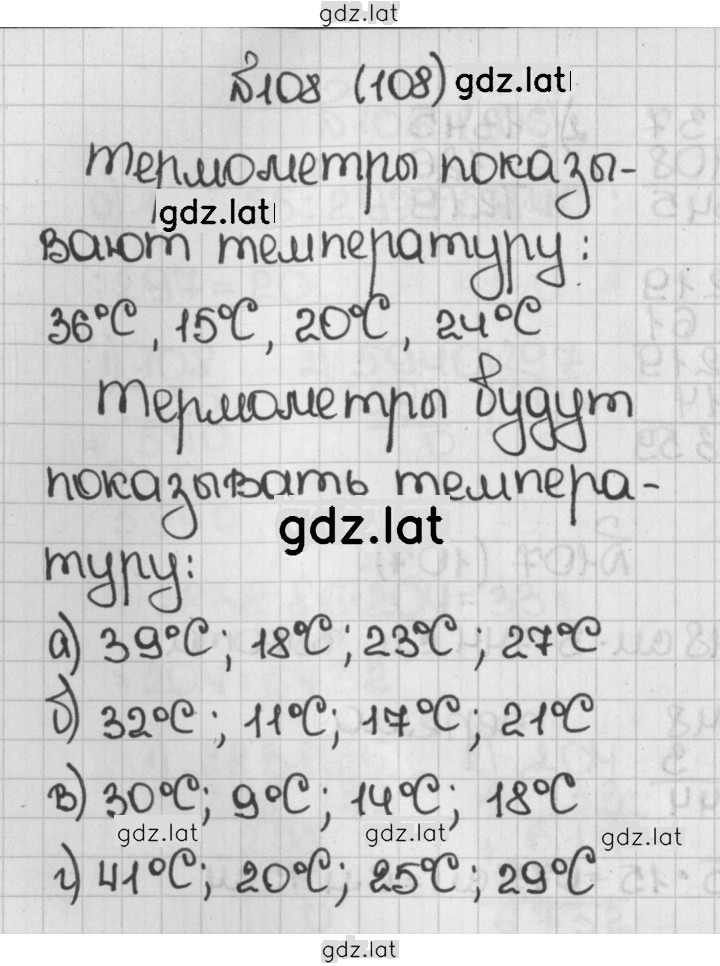 gdz.lat
№108 (108) gdz.lat
Термометры показы-
gdz.lat
вают температуру:
36°С, 15°С, 20°С, 24°С
Термометры будут
показывать темпера-
gdz.lat
туру:
а) 39°С; 18°С; 23°С; 27°С
б) 32°С; 11°С; 17°С; 21°С
в) 30°С; 9°С; 14°С; 18°С
gdz.lat gdz.lat gdz.lat
г) 41°С; 20°С; 25°С; 29°С
gdz.lat